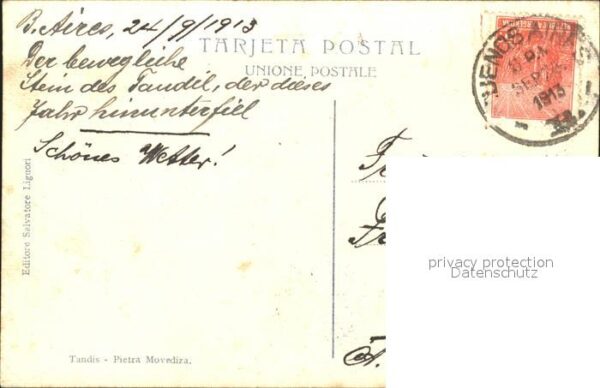 B. Aires, 24/9/1913
TARJETA POSTAL
UNIONE POSTALE
Der bewegliche
Stein des Tandil, der dieses
Jahr hinunterfiel
Schönes Wetter!
BUENOS AIRES
SEP
1913
Editore Salvatore Liguori
Tandis - Pietra Movediza.
privacy protection
Datenschutz